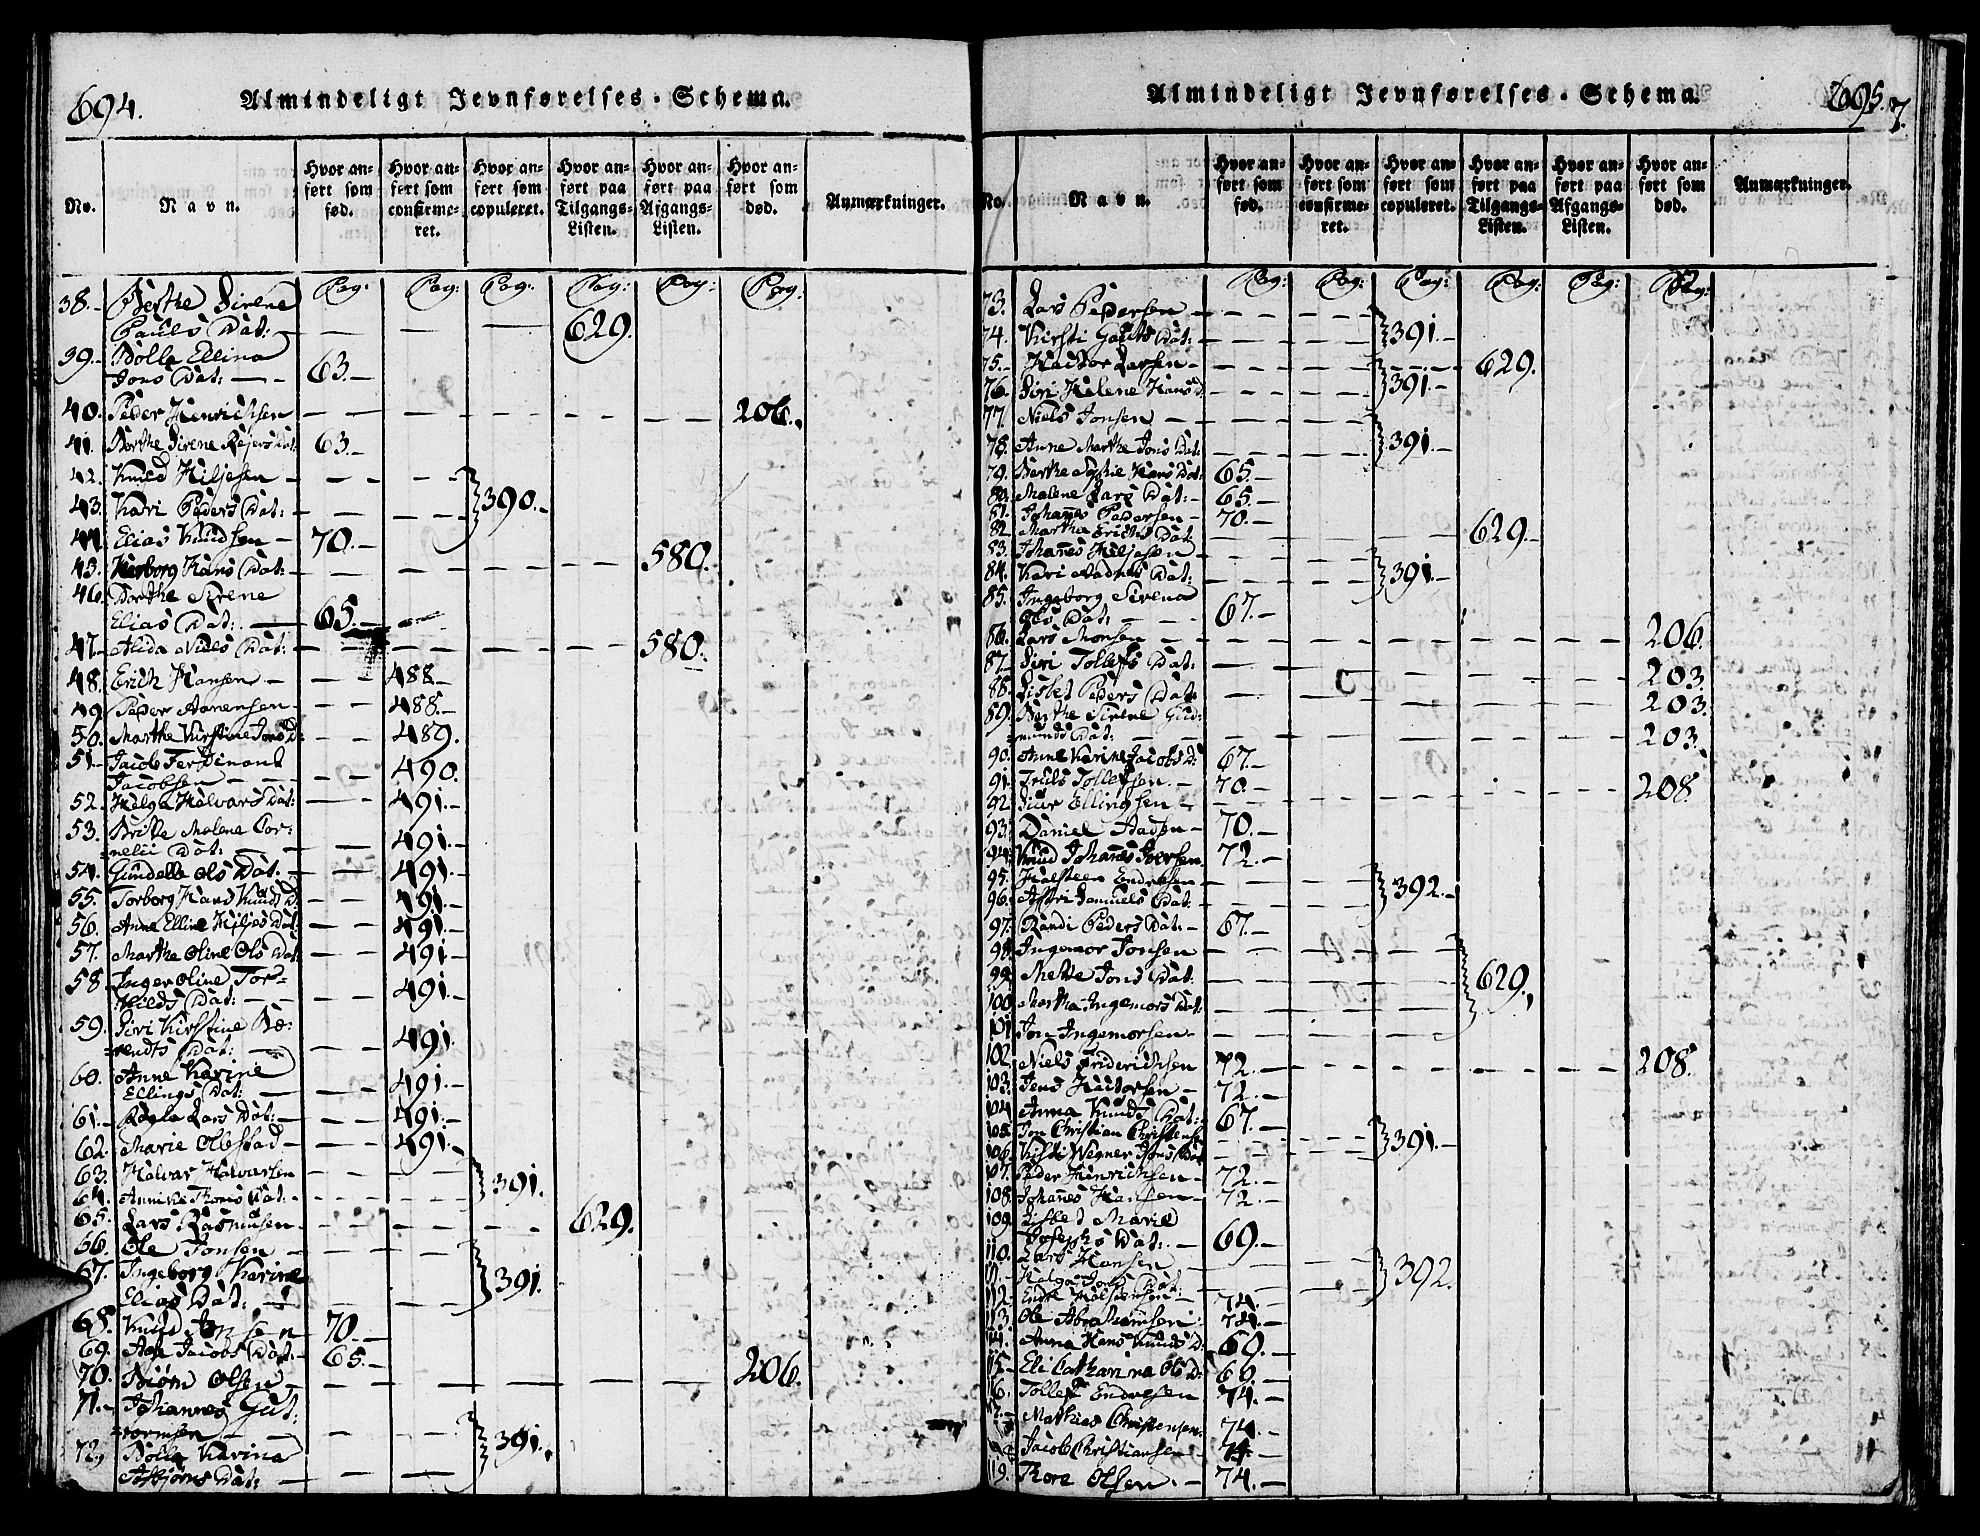 694.
Almindeligt Jevnførelses-Schema.
No.
Navn.
Hvor anført som fød.
Hvor anført som confirmeret.
Hvor anført som copuleret.
Hvor anført paa Tilgangs-Listen.
Hvor anført paa Afgangs-Listen.
Hvor anført som død.
Anmærkninger.
Pag: Pag: Pag: Pag: Pag: Pag:
38. Berthe Sirene
Pauls Dat: 629.
39. Bolla Ellina
Jons Dat: 63.
40. Peder Henrichsen 206.
41. Berthe Sirene Rejers Dat: 63.
42. Knud Kiljesen
43. Kari Peders Dat: 390.
44. Elias Knudsen 70.
45. Herborg Hans Dat: 580.
46. Dorthe Sirene
Elias Dat: 65.
47. Alida Niels Dat: 580.
48. Erich Hansen 488
49. Peder Aanensen 488.
50. Marthe Kirstine Jons D: 489.
51. Jacob Ferdinant
Jacobsen 490.
52. Helga Halvars Dat: 491.
53. Britte Malene Cor:
nelii Dat: 491.
54. Gundelle Ols Dat. 491.
55. Torborg Hans Knuds D: 491.
56. Anne Elline Kiljes Dat: 491.
57. Marthe Oline Ols Dat: 491
58. Inger Oline Tor-
kilds Dat: 491.
59. Siri Kirstine Be:
rendts Dat: 491.
60. Anne Karine
Ellings Dat: 491.
61. Lars Dat: 491.
62. Marie Olestad 491.
63. Halvar Halvarsen
64. Anniche Thomis Dat. 391.
65. Lars Rasmusen 629.
66. Ole Jonsen
67. Ingeborg Karine
Elias Dat: 391.
68. Knud Jonsen 70.
69. Jacobs Dat: 65.
70. Biørn Olsen 206.
71. Johannes Gut:
tormsen
72. Bolla Karina
Asbjørns Dat: 391.
Almindeligt Jevnførelses-Schema.
695.
7.
No.
Navn.
Hvor anført som fød.
Hvor anført som confirmeret.
Hvor anført som copuleret.
Hvor anført paa Tilgangs-Listen.
Hvor anført paa Afgangs-Listen.
Hvor anført som død.
Anmærkninger.
Pag: Pag: Pag: Pag: Pag: Pag:
73. Lars Pedersen
74. Kirsti Gauts Dat: 391.
75. Hactor Larsen 629.
76. Siri Helene Hans D. 391.
77. Niels Jonsen
78. Anne Marthe Jons Dat: 391.
79. Berthe Sophie Hans Dat: 65.
80. Malene Lars Dat: 65.
81. Johanes Pedersen 70.
82. Martha Erichs Dat 629.
83. Johanes Kiljesen
84. Kari Aadnes Dat: 391.
85. Ingeborg Sirena
Ols Dat: 67.
86. Lars Monsen 206.
87. Siri Tollefs Dat: 203.
88. Lisbet Peders Dat: 203.
89. Berthe Sirene Gud:
munds Dat: 203.
90. Anne Karine Jacobs D: 67.
91. Truls Tollefsen. 70.
92. Siur Ellingsen 208.
93. Daniel Aadsen 70.
94. Knud Johanes Iversen 72.
95. Halsteen Endresen
96. Astri Samuels Dat: 392.
97. Randi Peders Dat: 67.
98. Ingemor Jonsen
99. Mette Jons Dat: 629.
100. Martha Ingemors Dat:
101. Jon Ingemorsen
102. Niels Friderichsen 72. 208.
103. Jens Hactorsen 72.
104. Anna Knuds Dat: 67.
105. Jon Christian Christens:
106. Kisti Wegner Jons Dat 391.
107. Peder Henrichsen 72.
108. Johanes Hansen 72.
109. Lisbet Marie
Josephs Dat: 69.
110. Lars Hansen
111. Helga Jons Dat: 392.
112. Endre 74.
113. Ole Abrahamsen 74.
114. Anna Hans Knuds D: 69.
115. Eli Cathanna Ols D: 69.
116. Tollef Endresen 74.
117. Mathias Christensen 74.
118. Jacob Christiansen 74.
119. Tore Olsen 74.